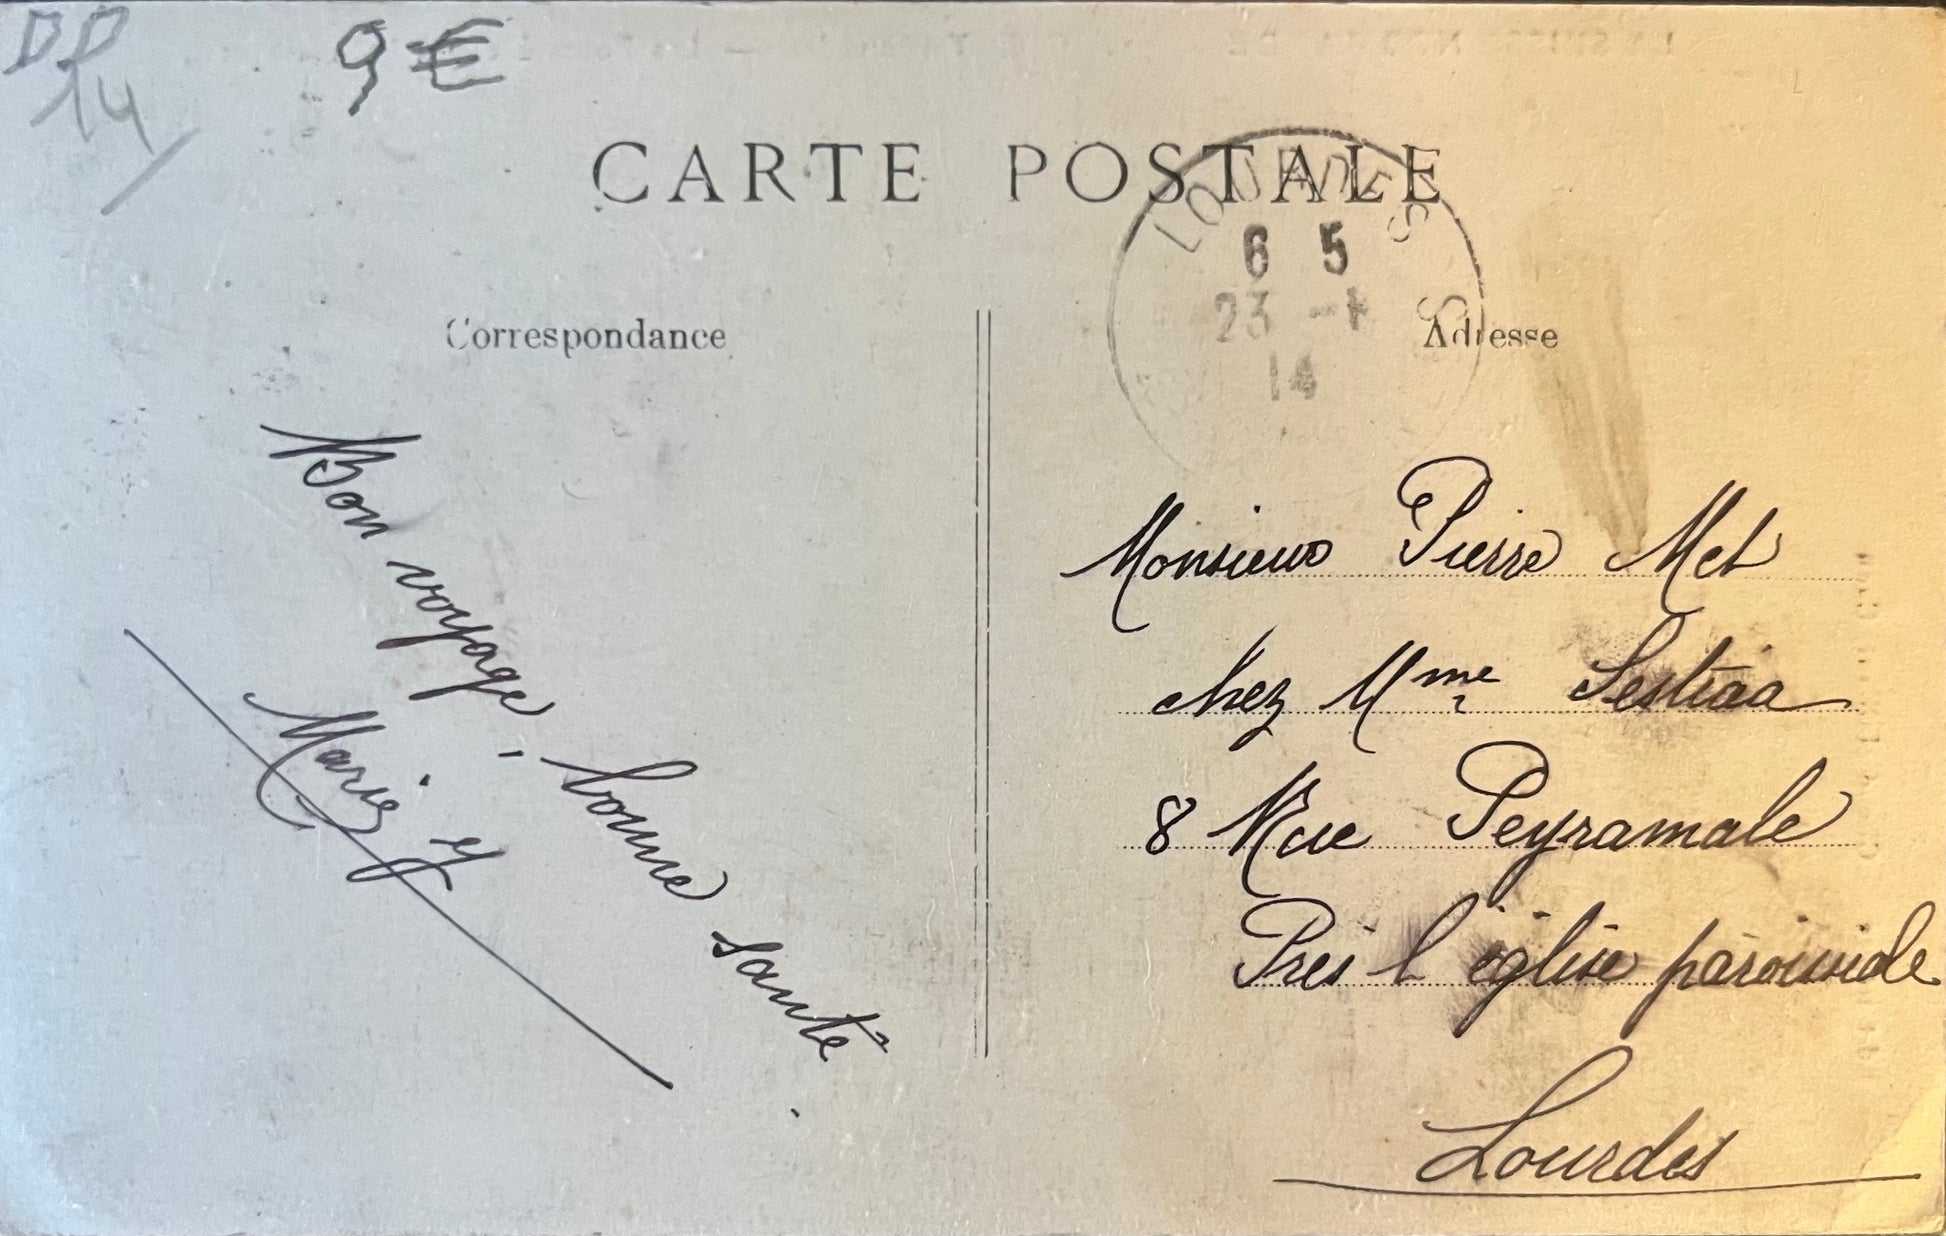 DP
14
9 €
CARTE POSTALE
LOURDES
6 5
23 -1
14
Correspondance
Adresse
Bon voyage, bonne santé.
Marie
Monsieur Pierre Met
chez Mme Sestiaa
8 Rue Peyramale
Près l'église paroissiale
Lourdes